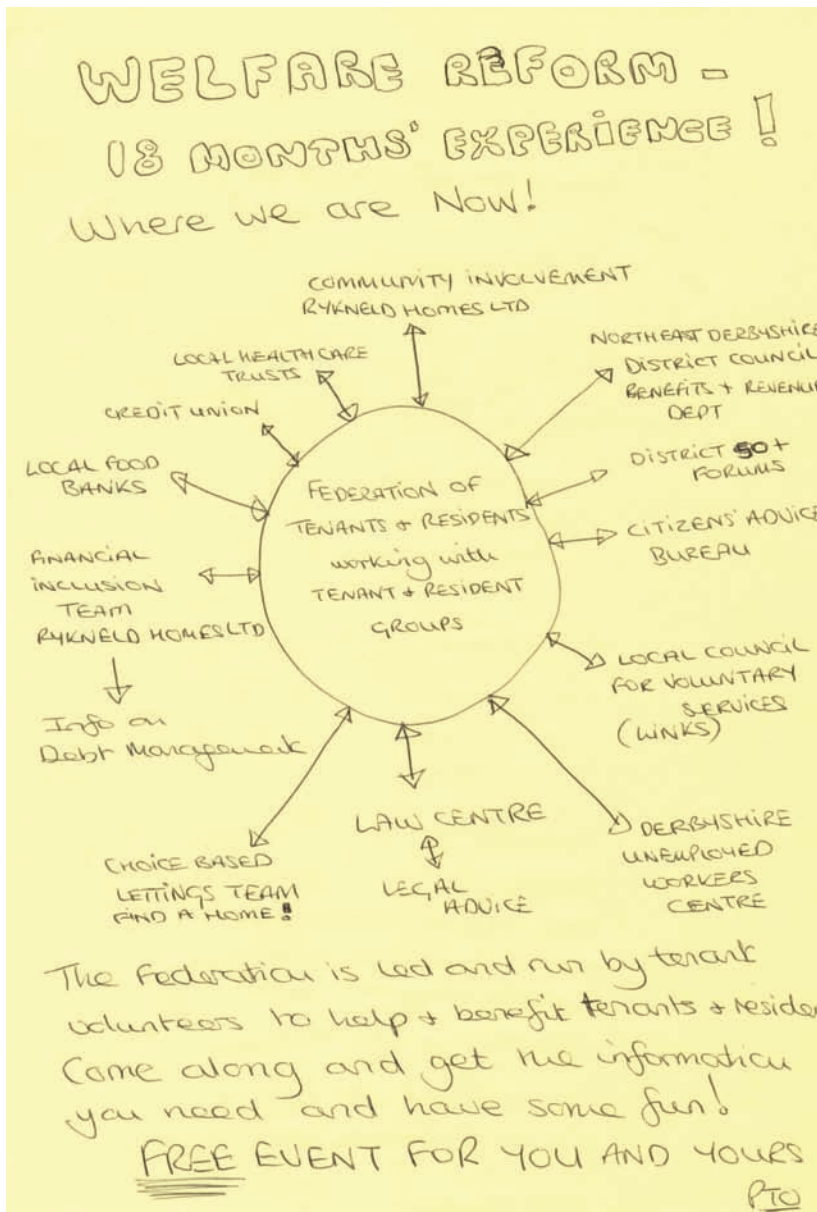 WELFARE REFORM -
18 MONTHS' EXPERIENCE!
Where we are Now!
COMMUNITY INVOLVEMENT
RYKNELD HOMES LTD
LOCAL HEALTHCARE
TRUSTS
CREDIT UNION
LOCAL FOOD
BANKS
FINANCIAL
INCLUSION
TEAM
RYKNELD HOMES LTD
Info on
Debt Management
NORTH EAST DERBYSHIRE
DISTRICT COUNCIL
BENEFITS + REVENUE
DEPT
DISTRICT 50+
FORUMS
CITIZENS' ADVICE
BUREAU
LOCAL COUNCIL
FOR VOLUNTARY
SERVICES
(LINKS)
FEDERATION OF
TENANTS & RESIDENTS
working with
TENANT & RESIDENT
GROUPS
CHOICE BASED
LETTINGS TEAM
FIND A HOME!
LAW CENTRE
LEGAL
ADVICE
DERBYSHIRE
UNEMPLOYED
WORKERS
CENTRE
The Federation is led and run by tenant
volunteers to help & benefit tenants & residen
Come along and get the information
you need and have some fun!
FREE EVENT FOR YOU AND YOURS
PTO